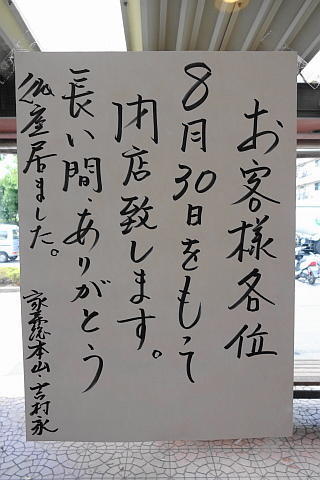 お客様各位
8月30日をもって
閉店致します。
長い間、ありがとう
御座居ました。
本山・吉村永